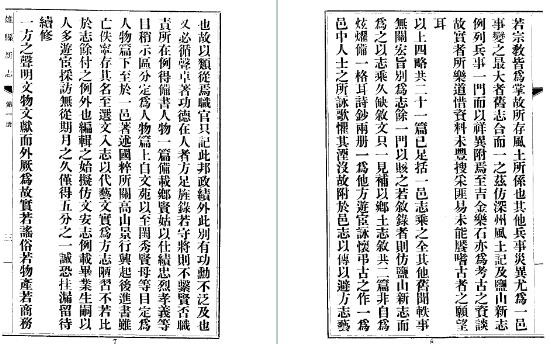 雄縣新志
第一册
三
也故以類從焉職官只記此邦政績外此別有功勳不泛及也
又必循聲卓著功德在人者方足旌錄若守將則不繫賢否職
責所在例得備書人物一篇備載鄉賢姑以仕績忠烈孝義等
目稍示區分定爲人物篇上自文苑以至閨秀賢母等目定爲
人物篇下至於一邑著述國粹所關高山景行興起後進書雖
亡佚寧存其名至選文入志以代藝文實爲方志陋習不若比
於志餘付之例外也編輯之始擬仿文安志例載畢業生嗣以
人多遊宦採訪無從期月之久僅得五分之一誠恐挂漏留待
續修
一方之聲明文物文獻而外厥爲故實若謠俗若物產若商務
7
若宗教皆爲掌故所存風土所係也其他兵事災異尤爲一邑
事變之最大者舊志合而一之茲仿深州風土記及鹽山新志
例列兵事一門而以祥異附焉至吉金樂石亦爲考古之資談
故實者所樂道惜資料未豐搜采匪易未能饜嗜古者之願望
耳
以上四略共二十一篇已足括一邑志乘之全其他舊聞軼事
無關宏旨別爲志餘一門以賅之若敘錄者則仿鹽山新志而
爲之志乘久缺敘文只一見補以鄉土志敘共二篇非自爲
炫燿備一格耳詩鈔兩册一爲他方遊宦詠懷弔古之作一爲
邑中人士之所詠歌懼其湮沒故附於邑志以傳以避方志藝
8